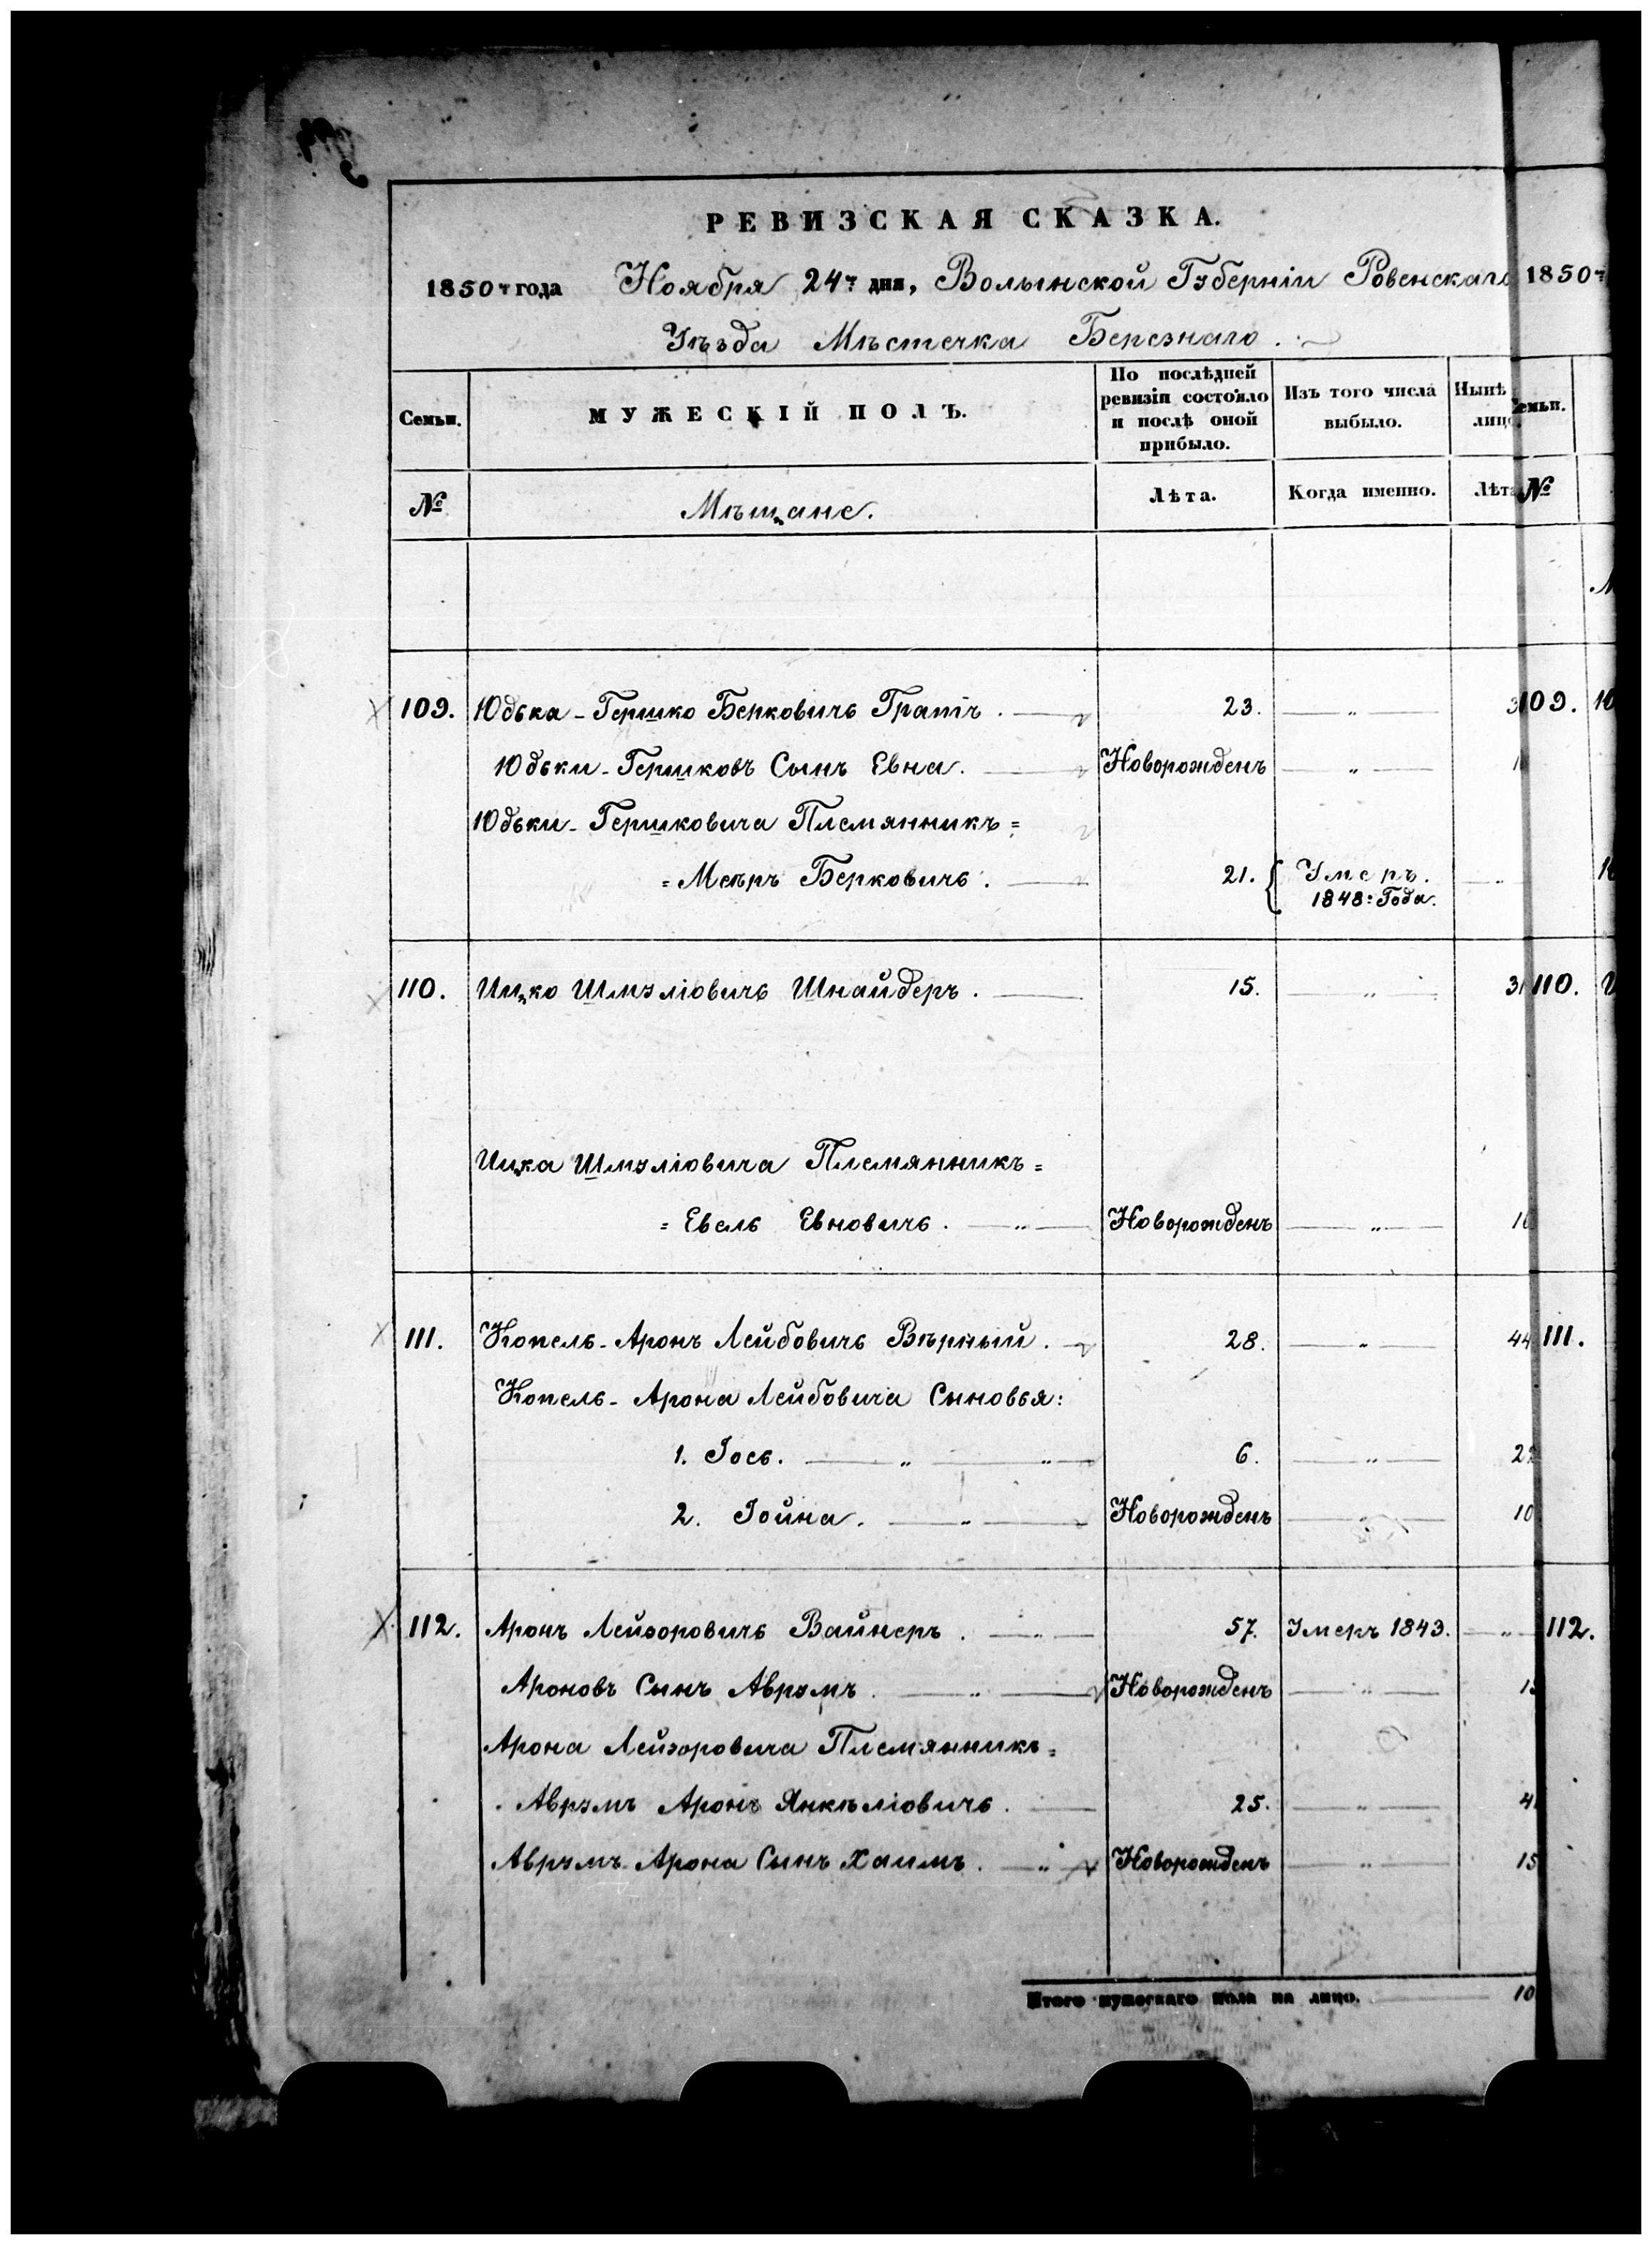 РЕВИЗСКАЯ СКАЗКА.
1850 г года Ноября 24 г дня, Волынской Губерніи Ровенскаго 1850
Уѣзда Мѣстечка Березнаго.
Семьи. МУЖЕСКІЙ ПОЛЪ. По послѣдней ревизіи состояло и послѣ оной прибыло. Изъ того числа выбыло. Нынѣ
№ Мѣщане. Лѣта. Когда именно. №
109. Юдька-Гершко Берковичь 23. „ 109.
Юдьки-Гершковъ Сынъ Евна. Новорожденъ „
Юдьки-Гершковича Племянникъ =
= Меѣръ Берковичь. 21. { Умеръ. 1848: Года.
110. Ицко Шмуліовичь Шнайдеръ. 15. „ 31 110.
Ицка Шмуліовича Племянникъ =
= Евель Евновичь. „ Новорожденъ „
111. Копель-Аронъ Лейбовичь Вѣрный. 28. „ 44 111.
Копель-Арона Лейбовича Сыновья:
1. Іось. „ „ 6. „
2. Іойна. „ Новорожденъ „ 10
112. Аронъ Лейзоровичь Вайнеръ. „ 57. Умеръ 1843. „ 112.
Ароновъ Сынъ Аврумъ. „ Новорожденъ „
Арона Лейзоровича Племянникъ =
Аврумъ Аронъ Янкѣліовичь. 25. „
Аврумъ Арона Сынъ Хаимъ. „ Новорожденъ „ 15
Итого мужескаго пола на лицо. 10